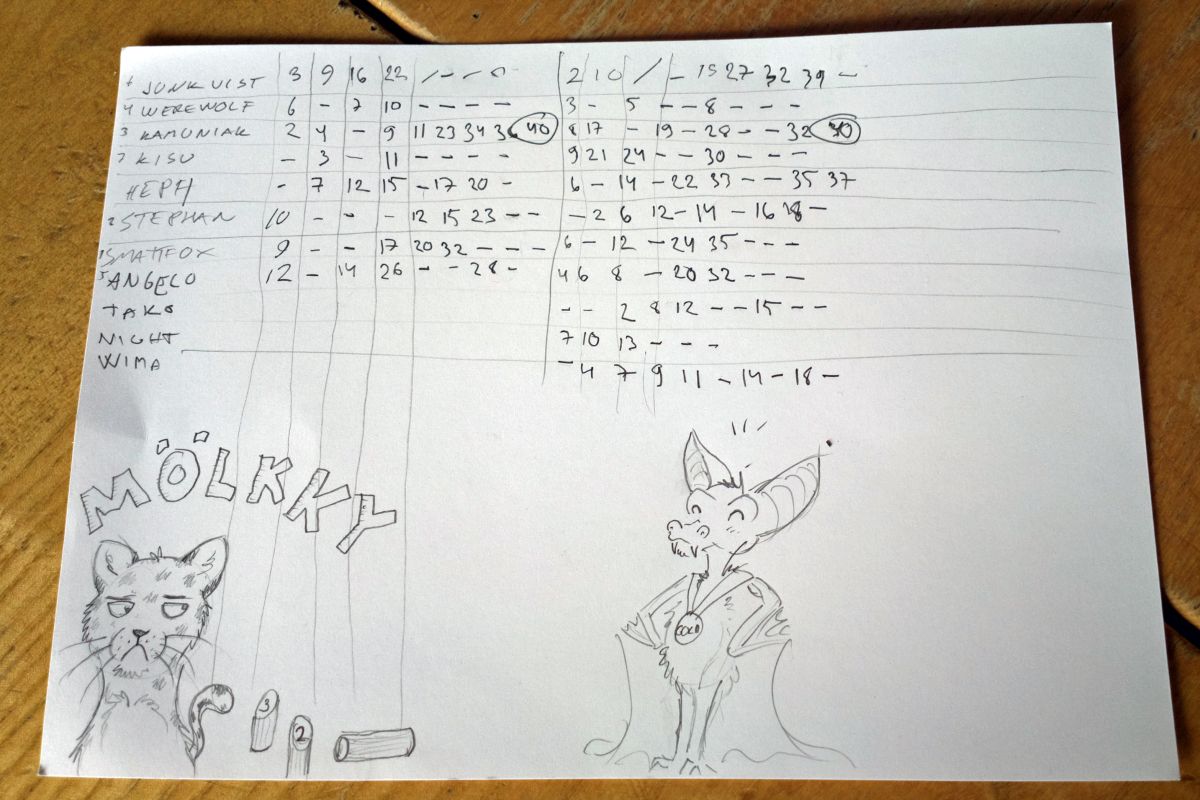 JUNKVIST 3 9 16 22 / - - 0 2 10 / - 15 27 32 39 -
4 WEREWOLF 6 - 7 10 - - - - 3 - 5 - - 8 - - -
3 KAMUNIAK 2 4 - 9 11 23 34 36 40 8 17 - 19 - 28 - - 32 50
7 KISU - 3 - 11 - - - - 9 21 24 - - 30 - - -
HEPH - 7 12 15 - 17 20 - 6 - 14 - 22 33 - - 35 37
2 STEPHAN 10 - - - 12 15 23 - - - 2 6 12 - 14 - 16 18 -
SMATTFOX 9 - - 17 20 32 - - - - 6 - 12 - 24 35 - - -
5 ANGELO 12 - 14 26 - - 28 - 4 6 8 - 20 32 - - -
TAKO - - 2 8 12 - - 15 - -
NIGHT 7 10 13 - - -
WIMA - 4 7 9 11 - 14 - 18 -
MÖLKKY
GOLD
3
2